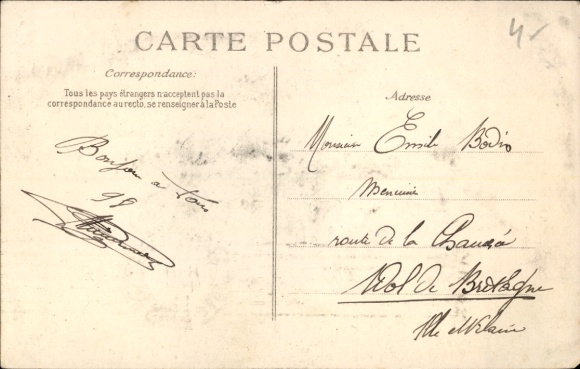 4-
CARTE POSTALE
Correspondance:
Tous les pays étrangers n'acceptent pas la
correspondance au recto, se renseigner à la Poste
Adresse
Bonjour à tous
98
Monsieur Emile Bodio
Menuisier
route de la Chaussée
Dol de Bretagne
Ille et Vilaine